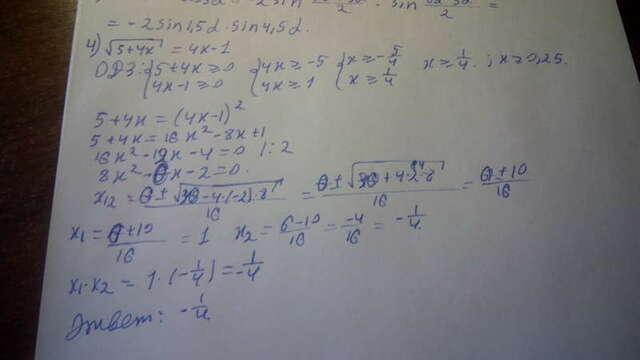 = -2sin1,5α·sin4,5α.
4) √5+4x = 4x-1
ОДЗ: {5+4x≥0 {4x≥-5 {x≥-5/4 x≥1/4. ; x≥0,25.
{4x-1≥0 {4x≥1 {x≥1/4
5+4x=(4x-1)²
5+4x=16x²-8x+1
16x²-12x-4=0 |:2
8x²-6x-2=0.
x12 = 6±√36-4·(-2)·8/16 = 6±√36+4·2·8/16 = 6±10/16
x1 = 6+10/16 = 1 x2 = 6-10/16 = -4/16 = -1/4
x1·x2 = 1·(-1/4) = -1/4
Ответ: -1/4